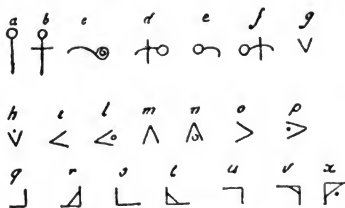 a b c d e f g
h i l m n o p
q r s t u v x